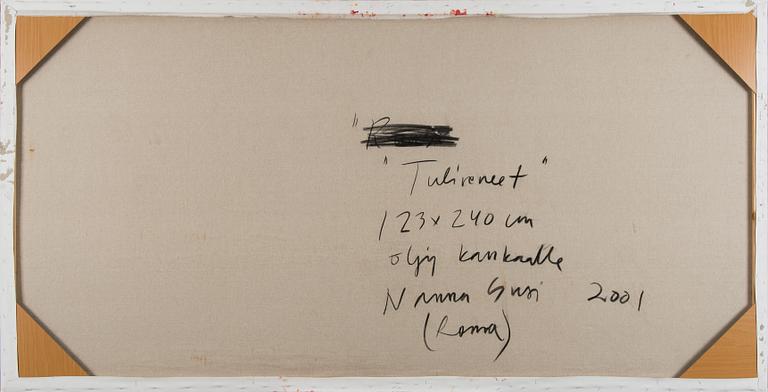 "R
"Tulireneet"
123x240 cm
öljy kankaalle
Nanna Susi 2001
(Roma)